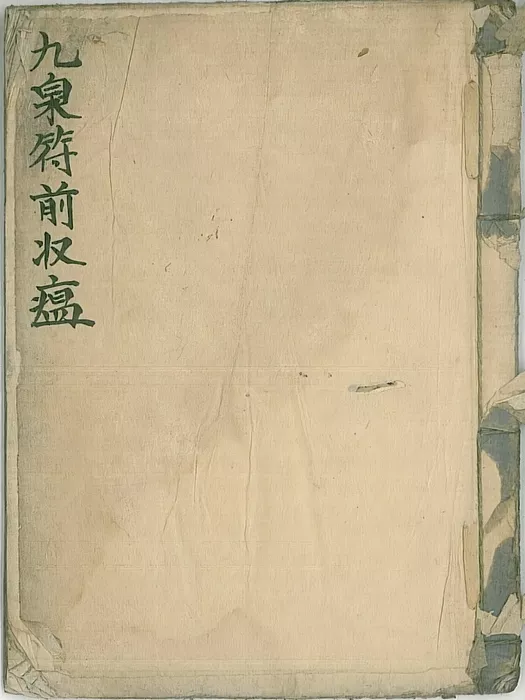 九泉符前収瘟